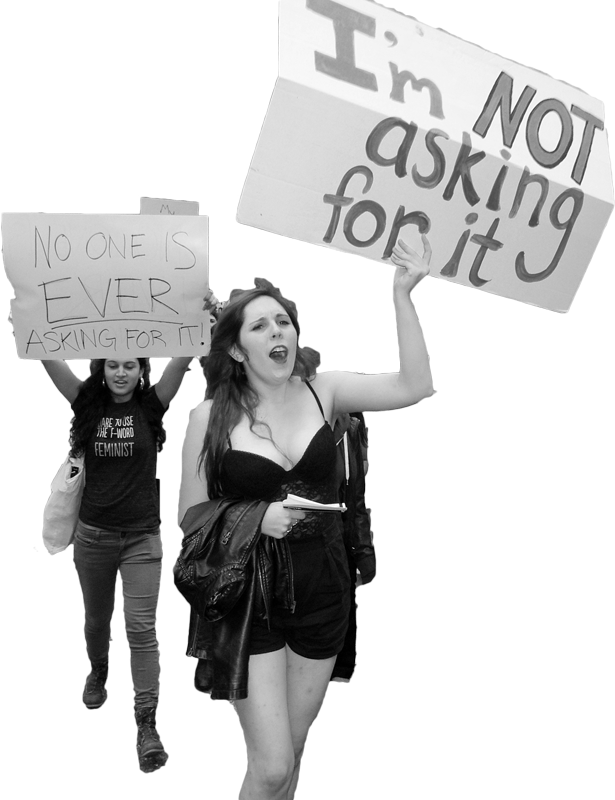 I'm NOT
asking
for it
M
NO ONE IS
EVER
ASKING FOR IT!
ARE TO USE
THE F-WORD
FEMINIST